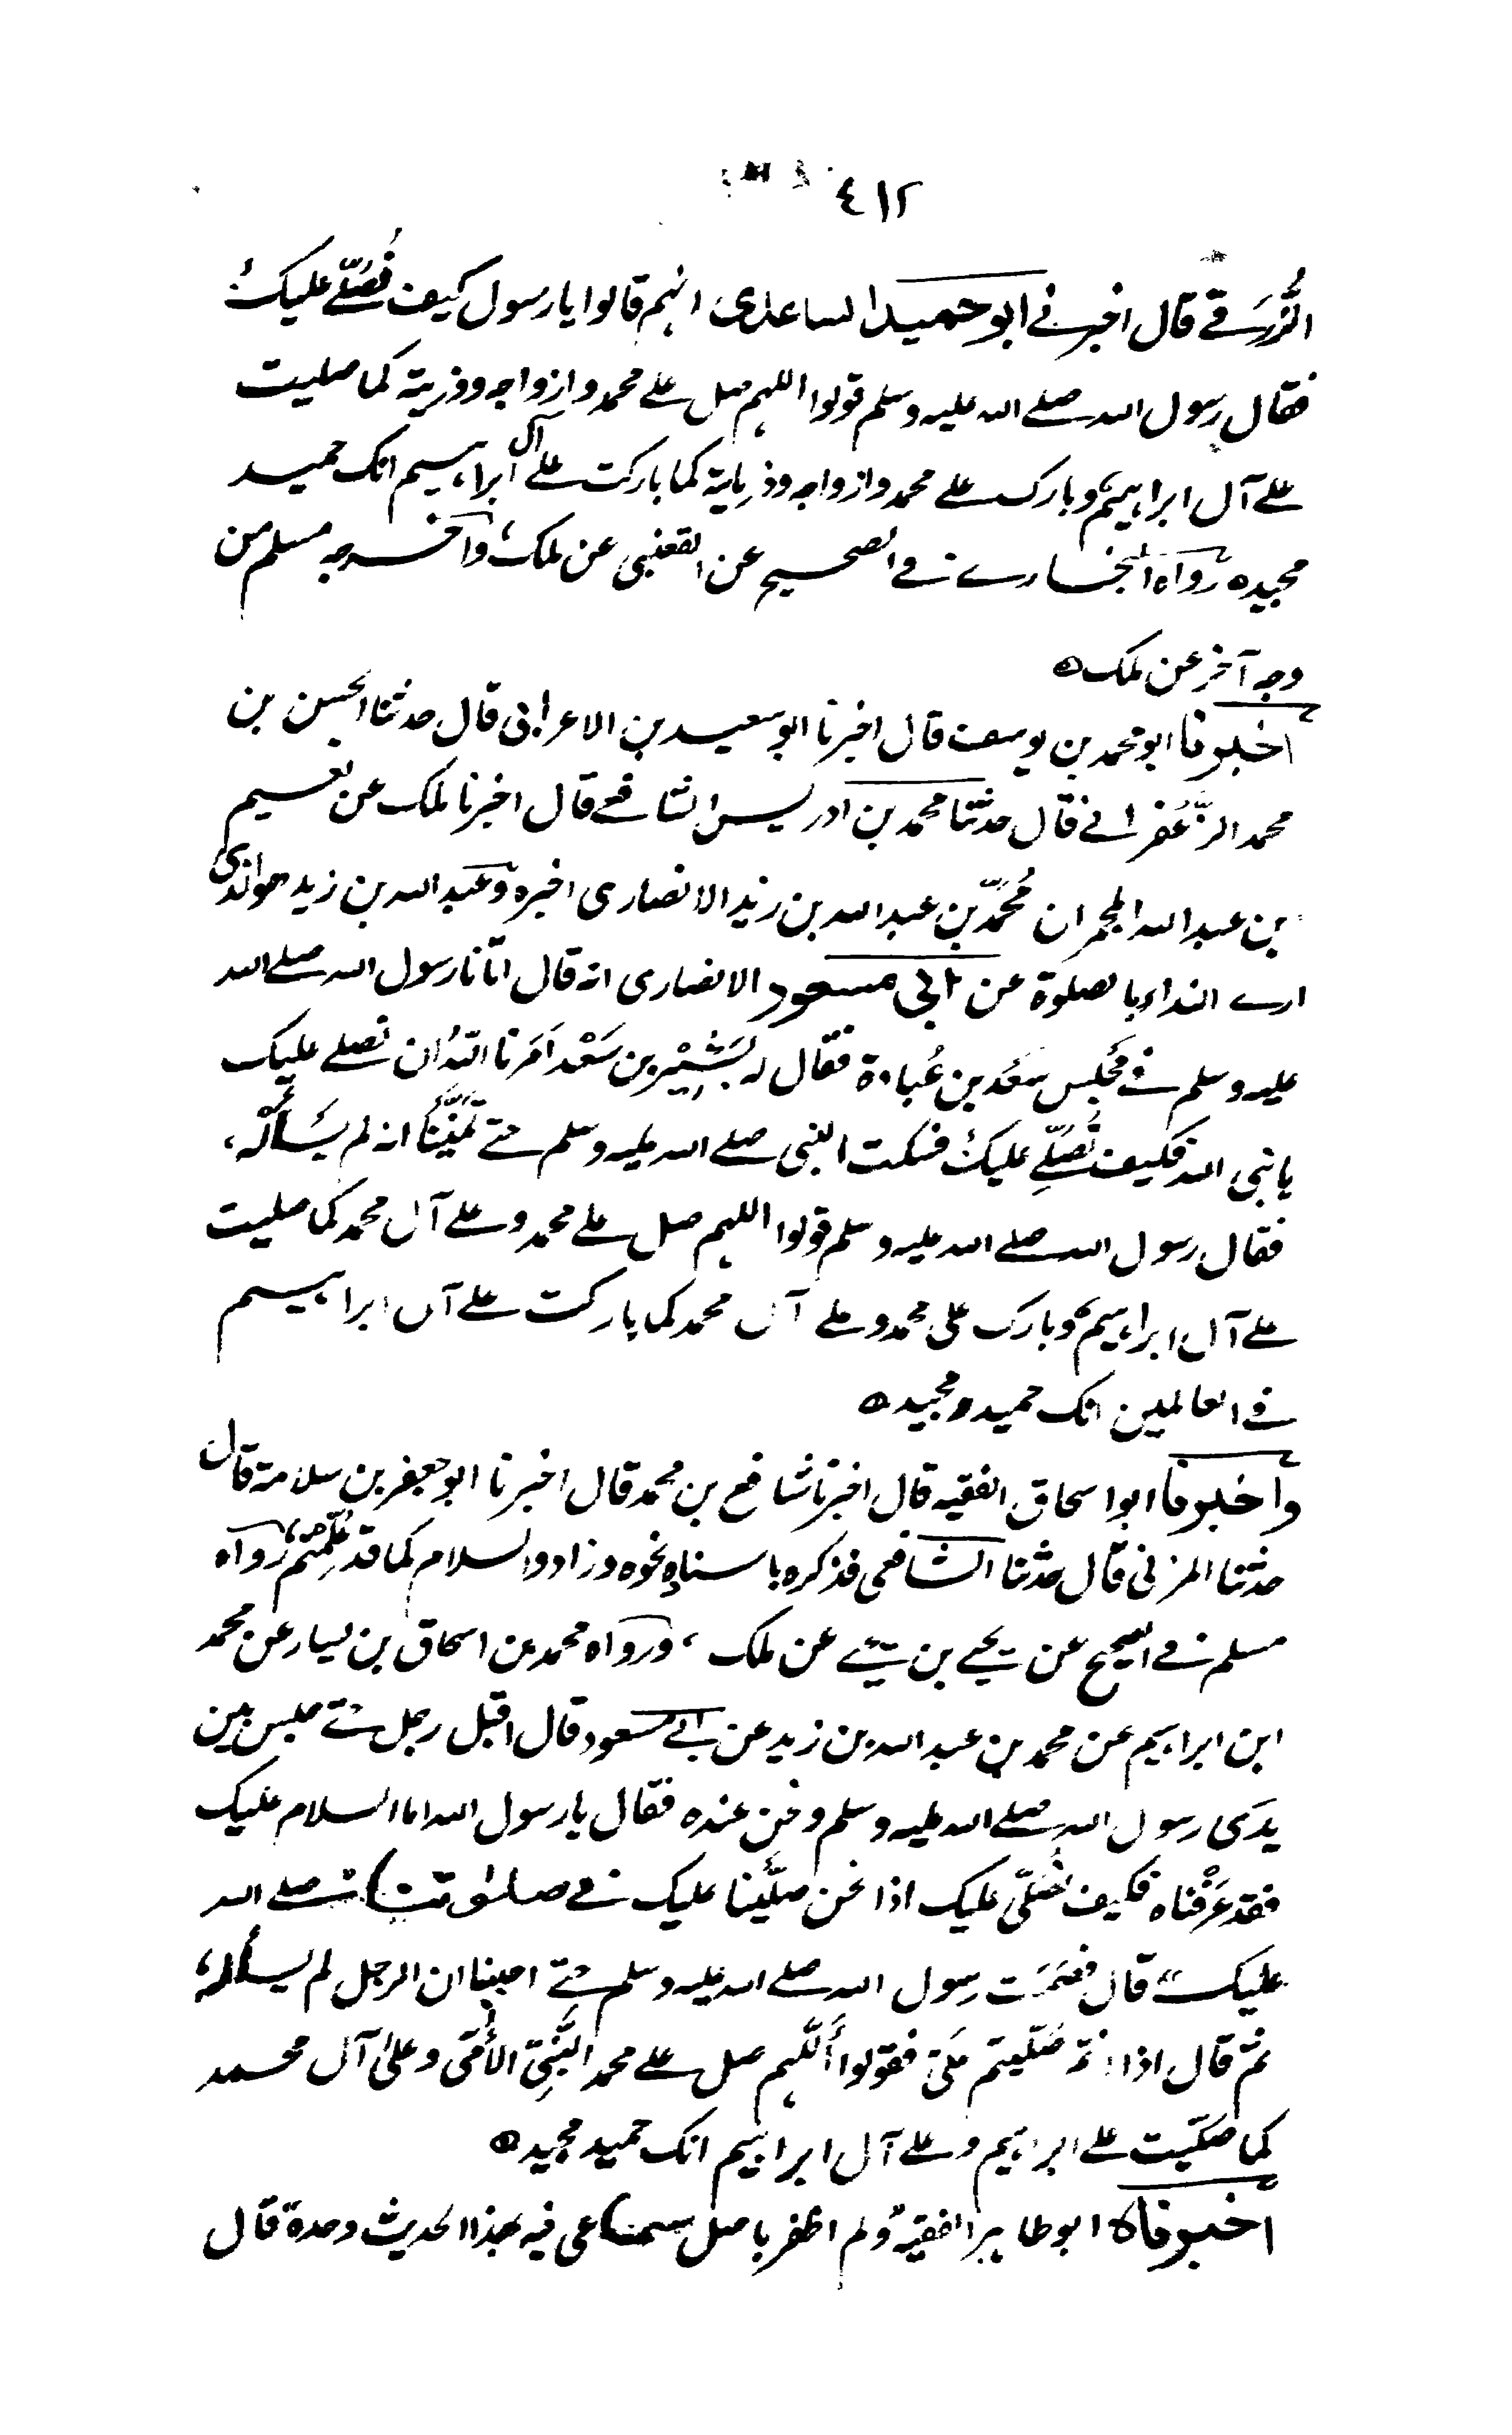 ٤١٢
الزُّرَقے قال اخبرنے ابو حميد الساعدى انہم قالوا يا رسول كيف نُصَلّے عليك
فقال رسول اللہ صلے اللہ عليہ وسلم قولوا اللہم صل علے محمد وازواجہ وذريتہ كما صليت
علے آل ابراہيم وبارك علے محمد وازواجہ وذريتہ كما باركت علے آل ابراہيم انك حميد
مجيد ٥ رواہ البخارے فے الصحيح عن القعنبى عن ملك واخرجہ مسلم من
وجہ آخر عن ملك ٥
اخبرنا ابو محمد بن يوسف قال اخبرنا ابو سعيد بن الاعرابى قال حدثنا الحسن بن
محمد الزَّعْفرانے قال حدثنا محمد بن ادريس الشافعے قال اخبرنا ملك عن نعيم
بن عبد اللہ المجمر ان مُحمّد بن عبد اللہ بن زيد الانصارى اخبرہ وعبد اللہ بن زيد ھوالذى
ارے النداء بالصلوة عن ابى مسعود الانصارى انہ قال اتانا رسول اللہ صلے اللہ
عليہ وسلم فے مَجْلِس سَعْد بن عُبادة فقال لہ بَشِيْر بن سَعْد اَمَرنا اللہُ ان نصلے عليك
يا نبى اللہ فكيف نُصَلّے عليك فسكت النبى صلے اللہ عليہ وسلم حتے تَمَنَّيْنَا انہ لم يَسْأَلْہ،
فقال رسول اللہ صلے اللہ عليہ وسلم قولوا اللہم صل علے محمد وعلے آل محمد كما صليت
علے آل ابراہيم وبارك على محمد وعلے آل محمد كما باركت علے آل ابراہيم
فے العالمين انك حميد مجيد ٥
واخبرنا ابو اسحاق الفقيہ قال اخبرنا شافع بن محمد قال اخبرنا ابو جعفر بن سلامة قال
حدثنا المزنى قال حدثنا الشافعى فذكرہ باسنادہ نحوہ وزاد والسلام كما قد عُلِّمْتم، رواہ
مسلم فے الصحيح عن يحيے بن يحيے عن ملك، ورواہ محمد بن اسحاق بن يسار عن محمد
ابن ابراہيم عن محمد بن عبد اللہ بن زيد عن ابے مسعود قال اقبل رجل حتے جلس بين
يدَى رسول اللہ صلے اللہ عليہ وسلم ونحن عندہ فقال يا رسول اللہ اما السلام عليك
فقد عَرَفْناہ فكيف نُصَلّى عليك اذا نحن صلَّينا عليك فے صلوٰتنا صلے اللہ
عليك قال فصَمَت رسول اللہ صلے اللہ عليہ وسلم حتے احببنا ان الرجل لم يسألہ،
ثم قال اذا انتم صَلّيتم عَلَىّ فقولوا أَللّہم صل علے محمد النَّبِىّ الأُمّى وعلىٰ آل محمد
كما صَلَّيت علے ابراہيم وعلے آل ابراہيم انك حميد مجيد ٥
اخبرناہ ابو طاہر الفقيہ ولم اظفر باصل سماعى فيہ بهذا الحديث وحدہ قال